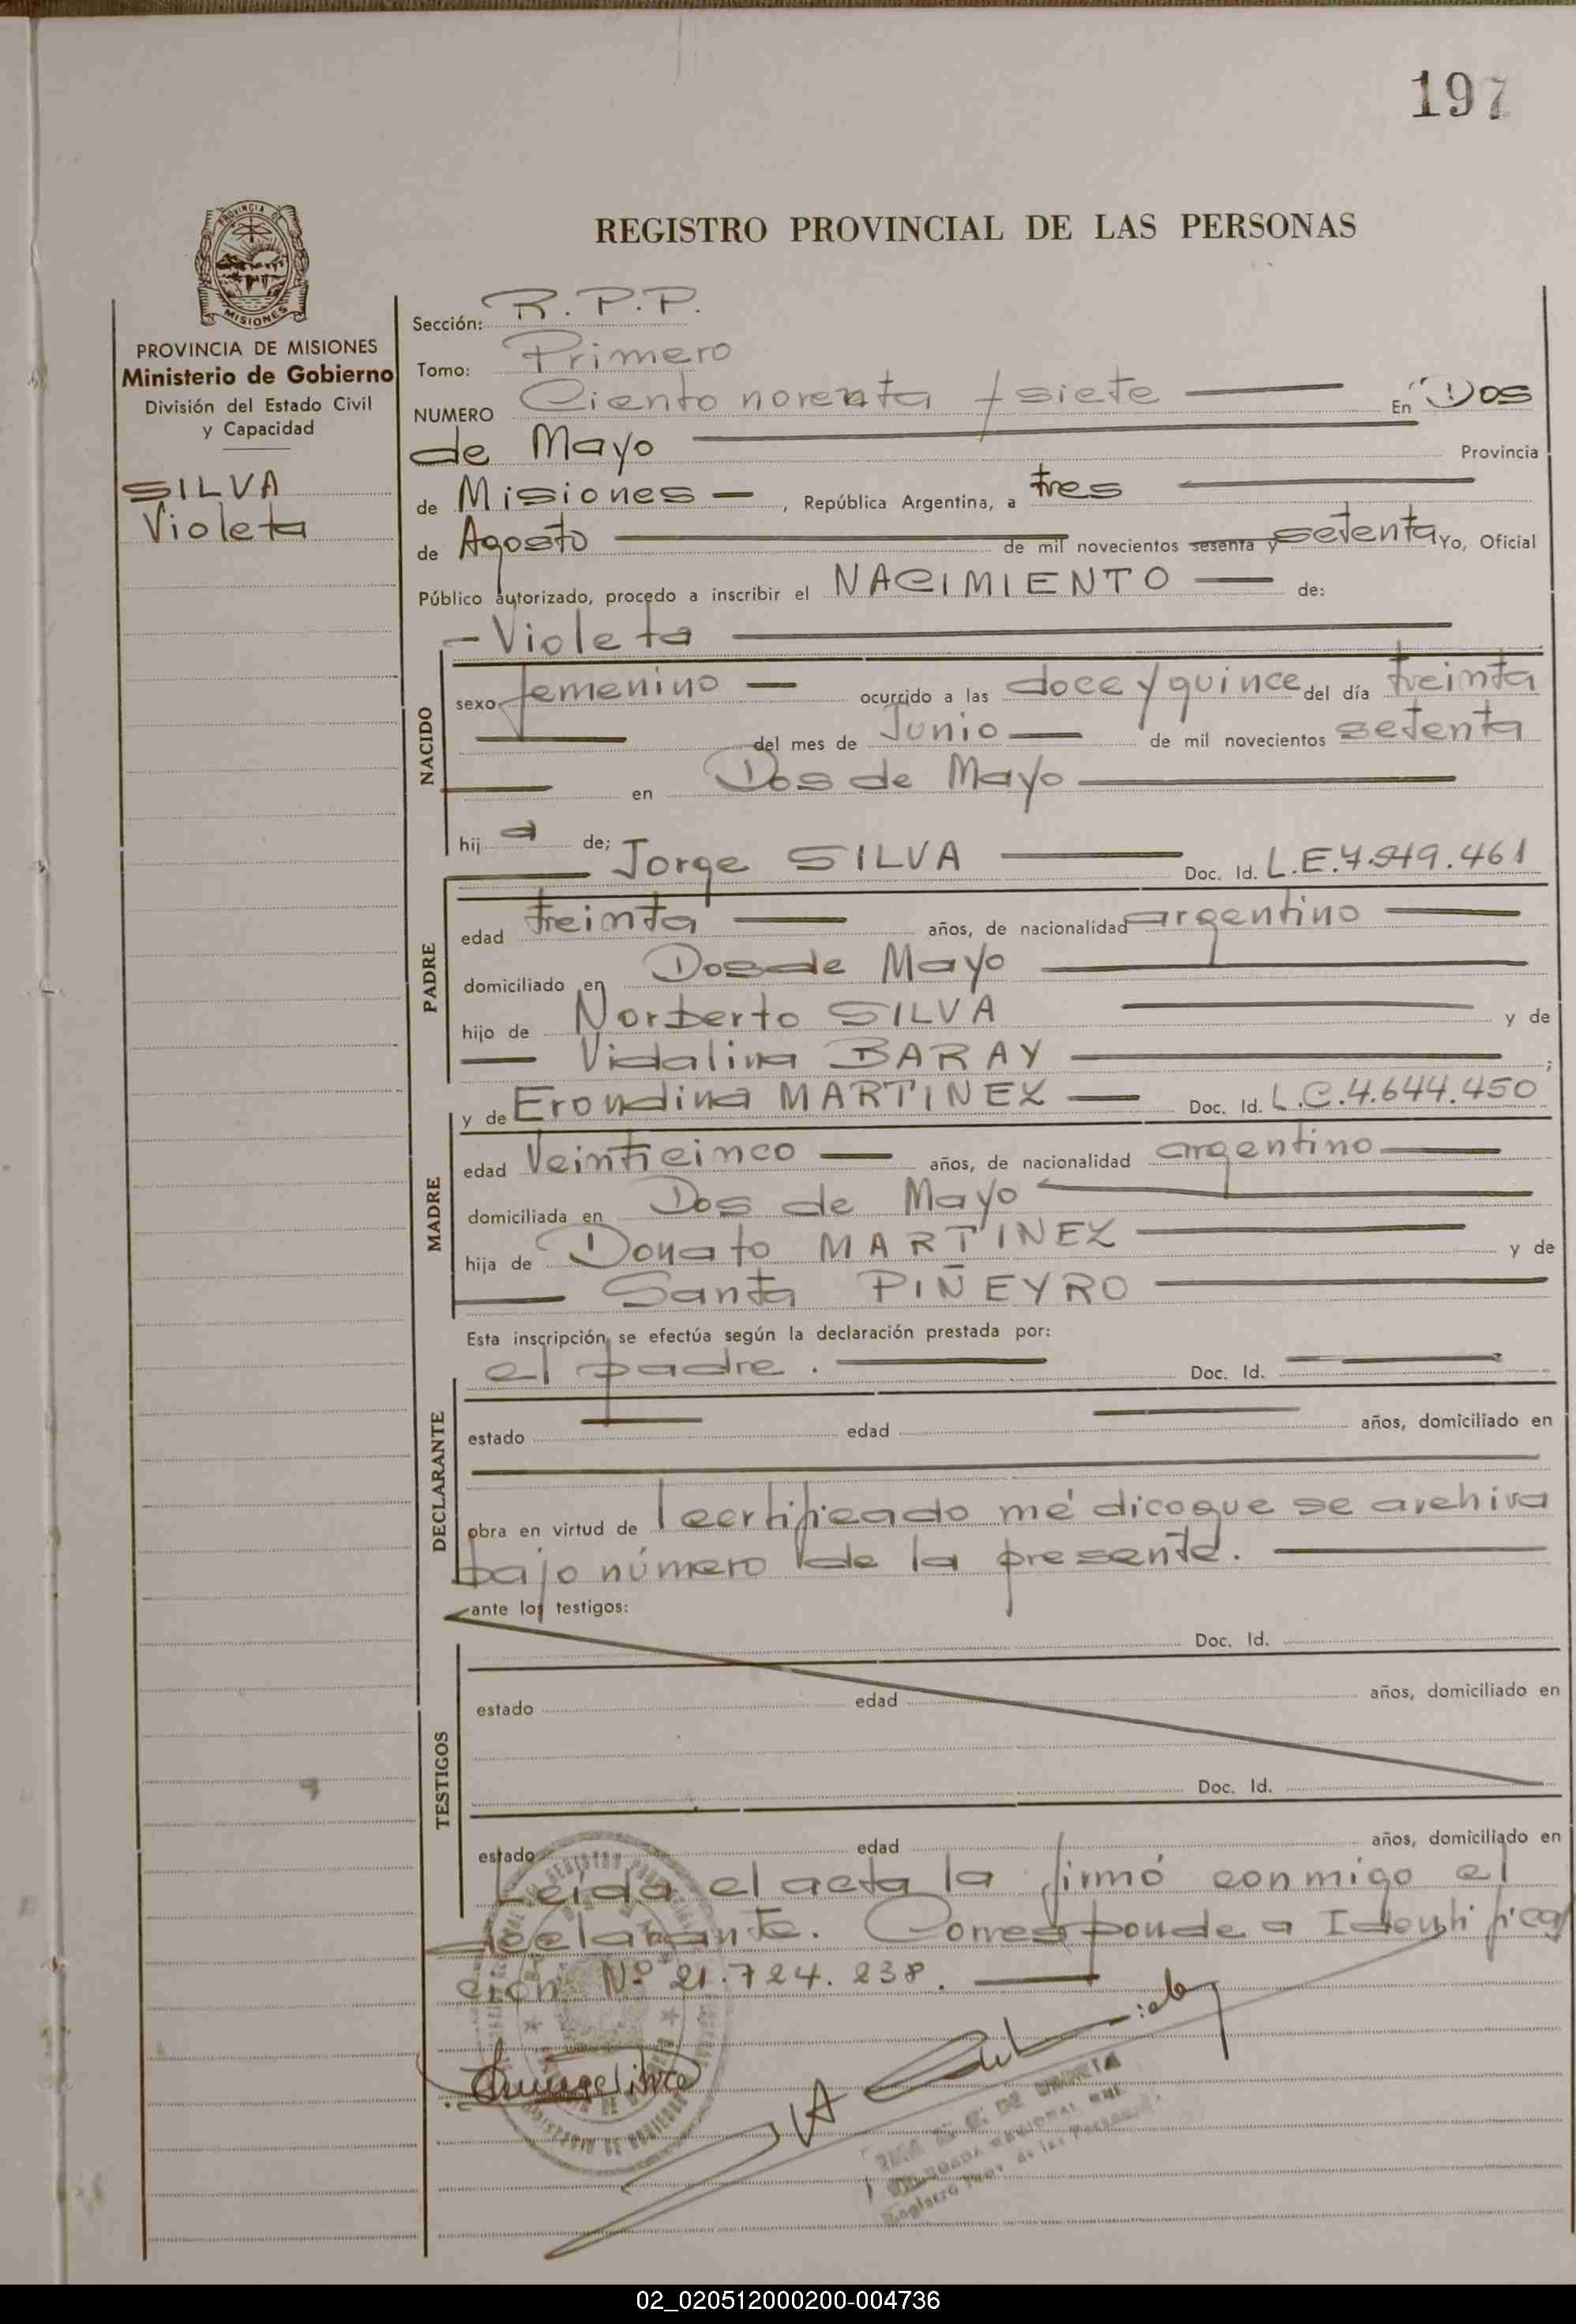 197
PROVINCIA DE
MISIONES
PROVINCIA DE MISIONES
Ministerio de Gobierno
División del Estado Civil
y Capacidad
SILVA
Violeta
REGISTRO PROVINCIAL DE LAS PERSONAS
Sección: R.P.P.
Tomo: Primero
NUMERO Ciento noventa y siete En Dos
de Mayo Provincia
de Misiones, República Argentina, a tres
de Agosto de mil novecientos sesenta y setenta Yo, Oficial
Público autorizado, procedo a inscribir el NACIMIENTO de:
Violeta
NACIDO
sexo femenino ocurrido a las doce y quince del día treinta
del mes de Junio de mil novecientos setenta
en Dos de Mayo
hij a de; Jorge SILVA Doc. Id. L.E.7.549.461
PADRE
edad treinta años, de nacionalidad argentino
domiciliado en Dos de Mayo
hijo de Norberto SILVA y de
Vidalina BARAY ;
y de Erondina MARTINEZ Doc. Id. L.C.4.644.450
MADRE
edad Veinticinco años, de nacionalidad argentino
domiciliada en Dos de Mayo
hija de Donato MARTINEZ y de
Santa PIÑEYRO
Esta inscripción se efectúa según la declaración prestada por:
el padre. Doc. Id.
DECLARANTE
estado edad años, domiciliado en
obra en virtud de certificado médico que se archiva
bajo número de la presente.
ante los testigos:
Doc. Id.
TESTIGOS
estado edad años, domiciliado en
Doc. Id.
estado edad años, domiciliado en
Leída el acta la firmó conmigo el
declarante. Corresponde a Identifica
ción Nº 21.724.238.
Registro Prov. de las Personas
02_020512000200-004736